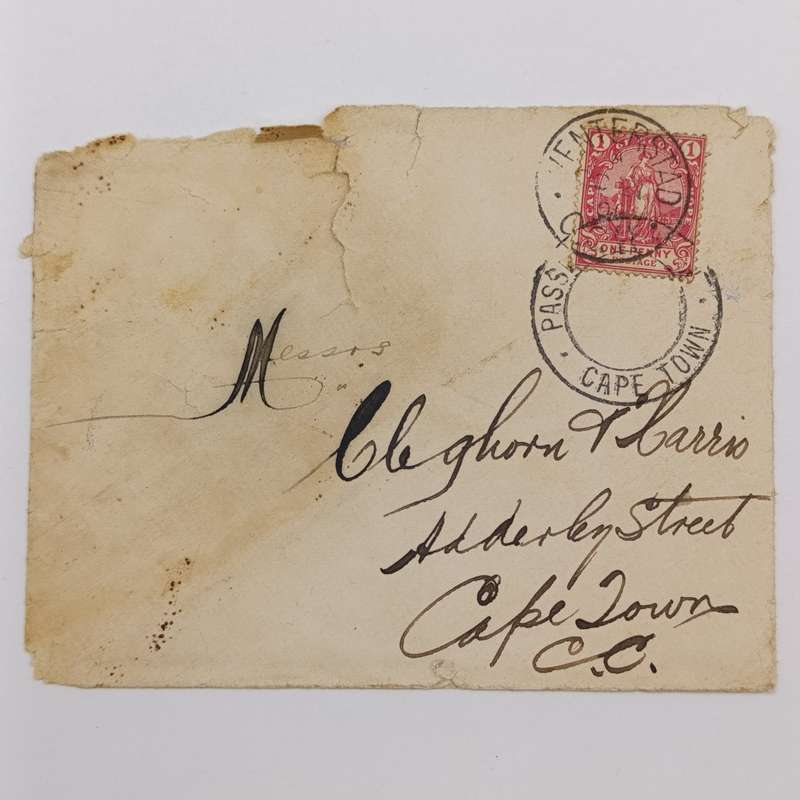 VENTERSTAD
1 1
ONE PENNY
PASS
CAPE TOWN
Messrs
Cleghorn & Harris
Adderley Street
Cape Town
C.C.